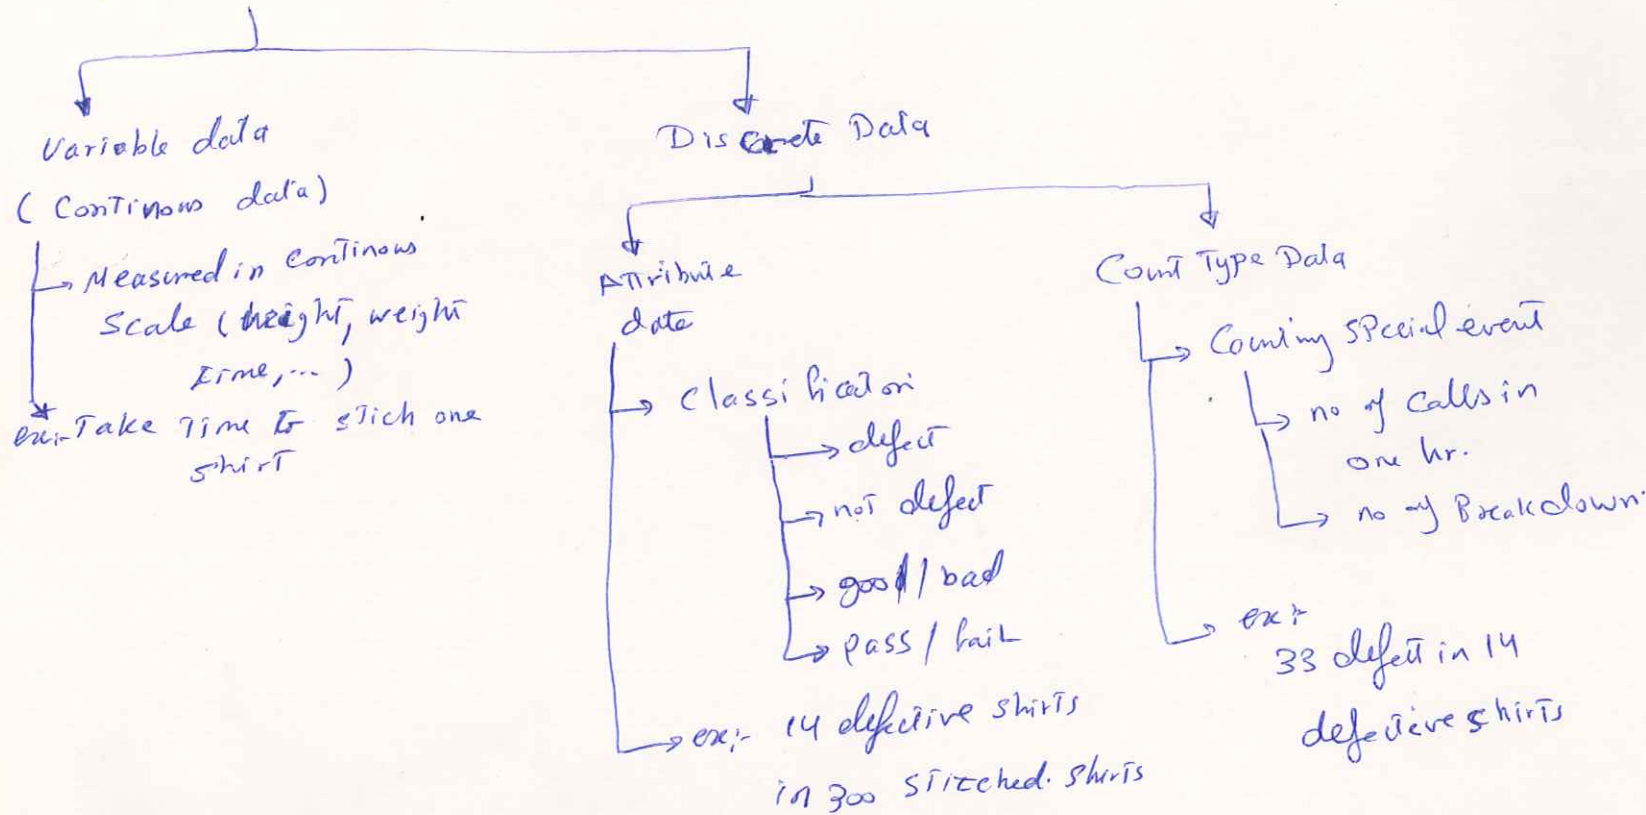 Variable data
(Continous data)
Measured in Continous
Scale (height, weight
time,...)
ex:- Take Time to stich one
shirt
Discrete Data
Attribute
date
Classification
defect
not defect
good/bad
pass/fail
ex:- 14 defective shirts
in 300 stitched. Shirts
Count Type Data
Counting special event
no of calls in
one hr.
no of Breakdown.
ex:-
33 defett in 14
defective shirts